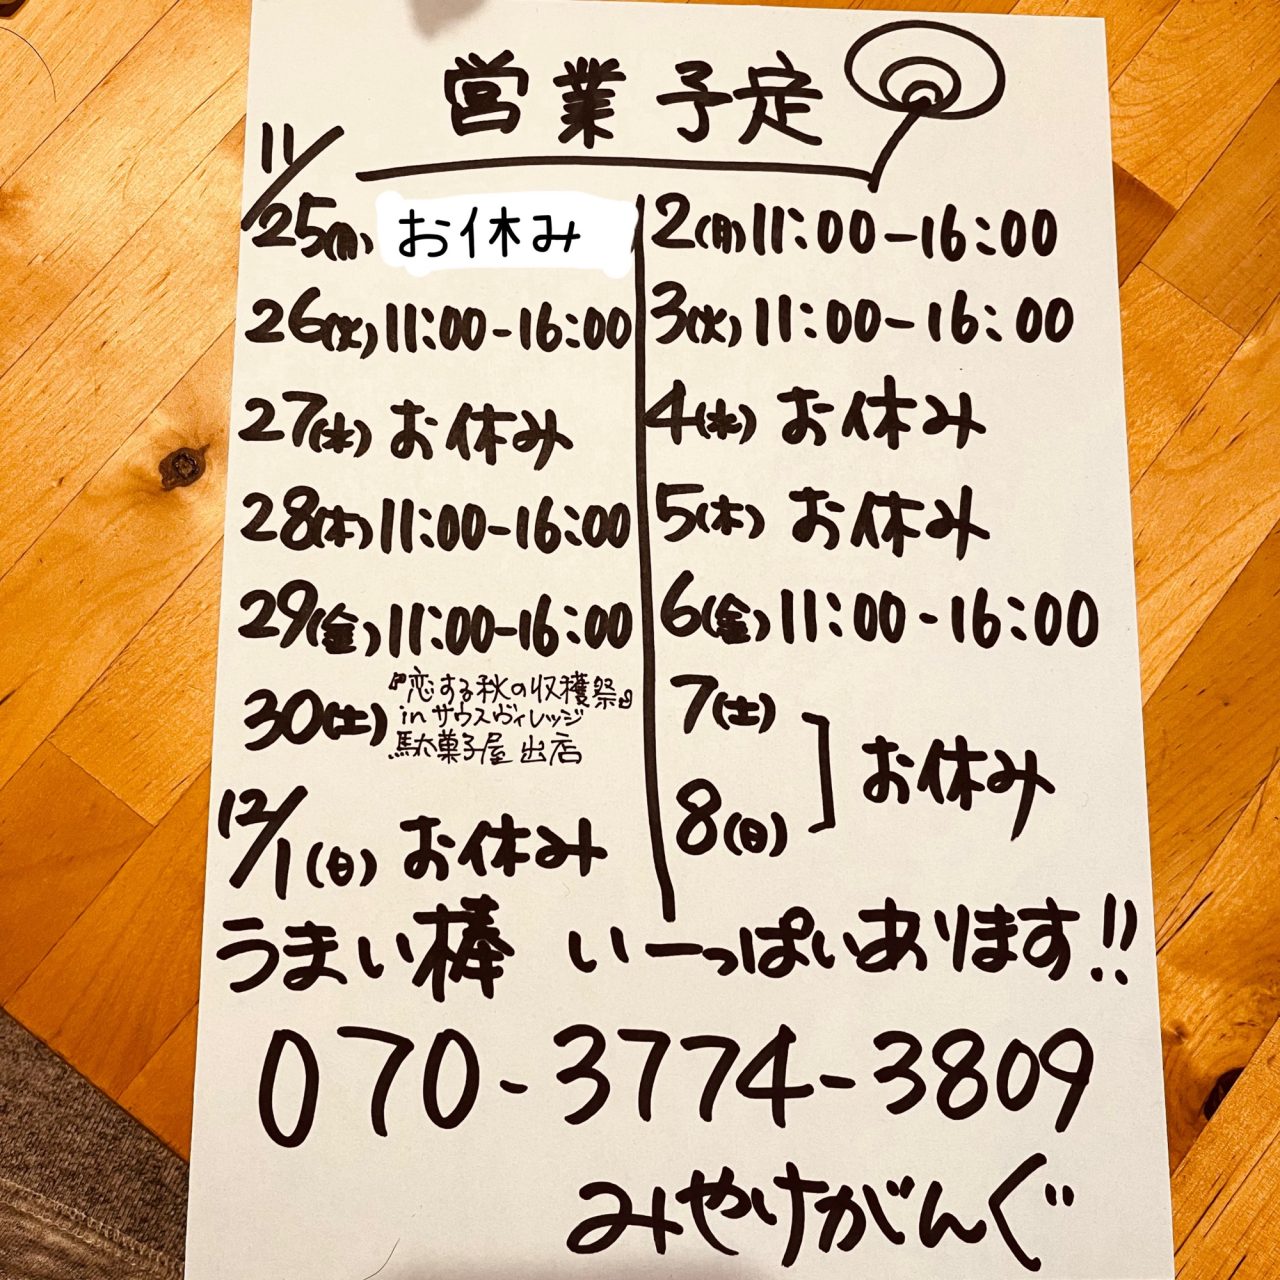 営業予定
11/
25(月) お休み
26(火) 11:00-16:00
27(水) お休み
28(木) 11:00-16:00
29(金) 11:00-16:00
30(土) 『恋する秋の収穫祭』
in サウスヴィレッジ
駄菓子屋 出店
12/1(日) お休み
2(月) 11:00-16:00
3(火) 11:00-16:00
4(水) お休み
5(木) お休み
6(金) 11:00-16:00
7(土)
8(日)
お休み
うまい棒 いーっぱいあります!!
070-3774-3809
みやけがんぐ